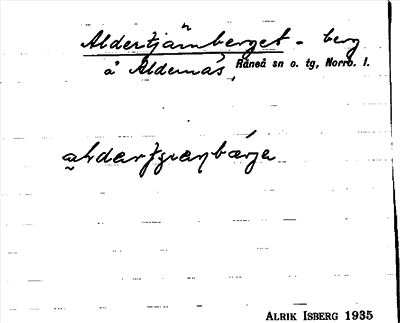 Aldertjärnberget - berg
å Aldernäs, Råneå sn o. tg, Norrb. l.
ALRIK ISBERG 1935